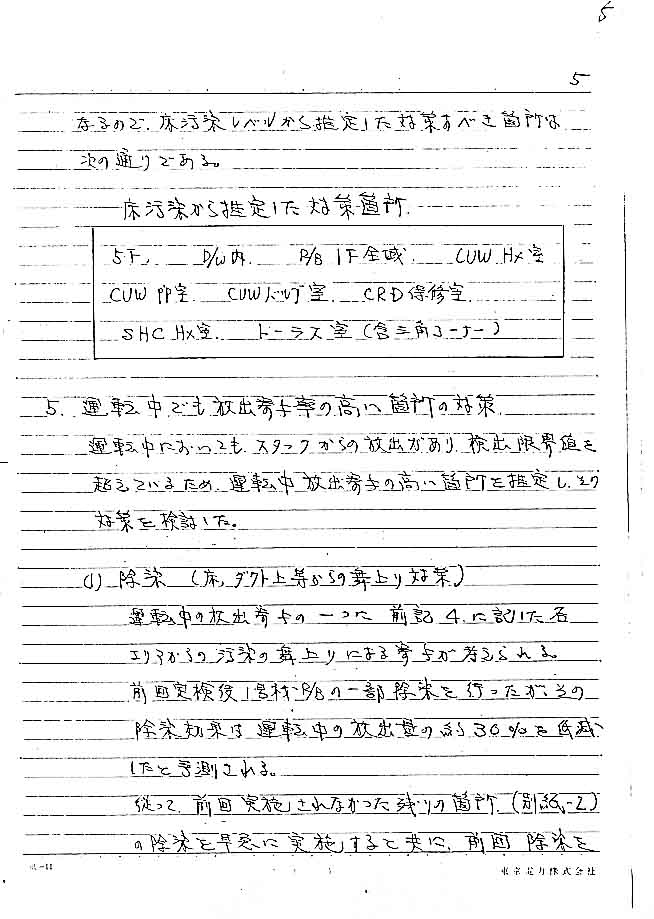 5
5
なるので、床汚染レベルから推定した対策すべき箇所は
次の通りである。
床汚染から推定した対策箇所.
5F、 D/W内. R/B 1F全域. CUW Hx室
CUW PP室. CUWバルブ室. CRD保修室.
SHC Hx室. トーラス室(含三角コーナー)
5. 運転中でも放出寄与率の高い箇所の対策.
運転中においても、スタックからの放出があり、検出限界値を
超えているため、運転中放出寄与の高い箇所を推定し、その
対策を検討した。
(1) 除染 (床,ダクト上等からの舞上り対策)
運転中の放出寄与の一つに 前記4.に記した各
エリアからの汚染の舞上りによる寄与が考えられる。
前回定検後1号機R/Bの一部除染を行ったが、その
除染効果は運転中の放出量の約30%を低減
したと予測される。
従って、前回実施されなかった残りの箇所.(別紙-2)
の除染を早急に実施すると共に、前回 除染を
東京電力株式会社